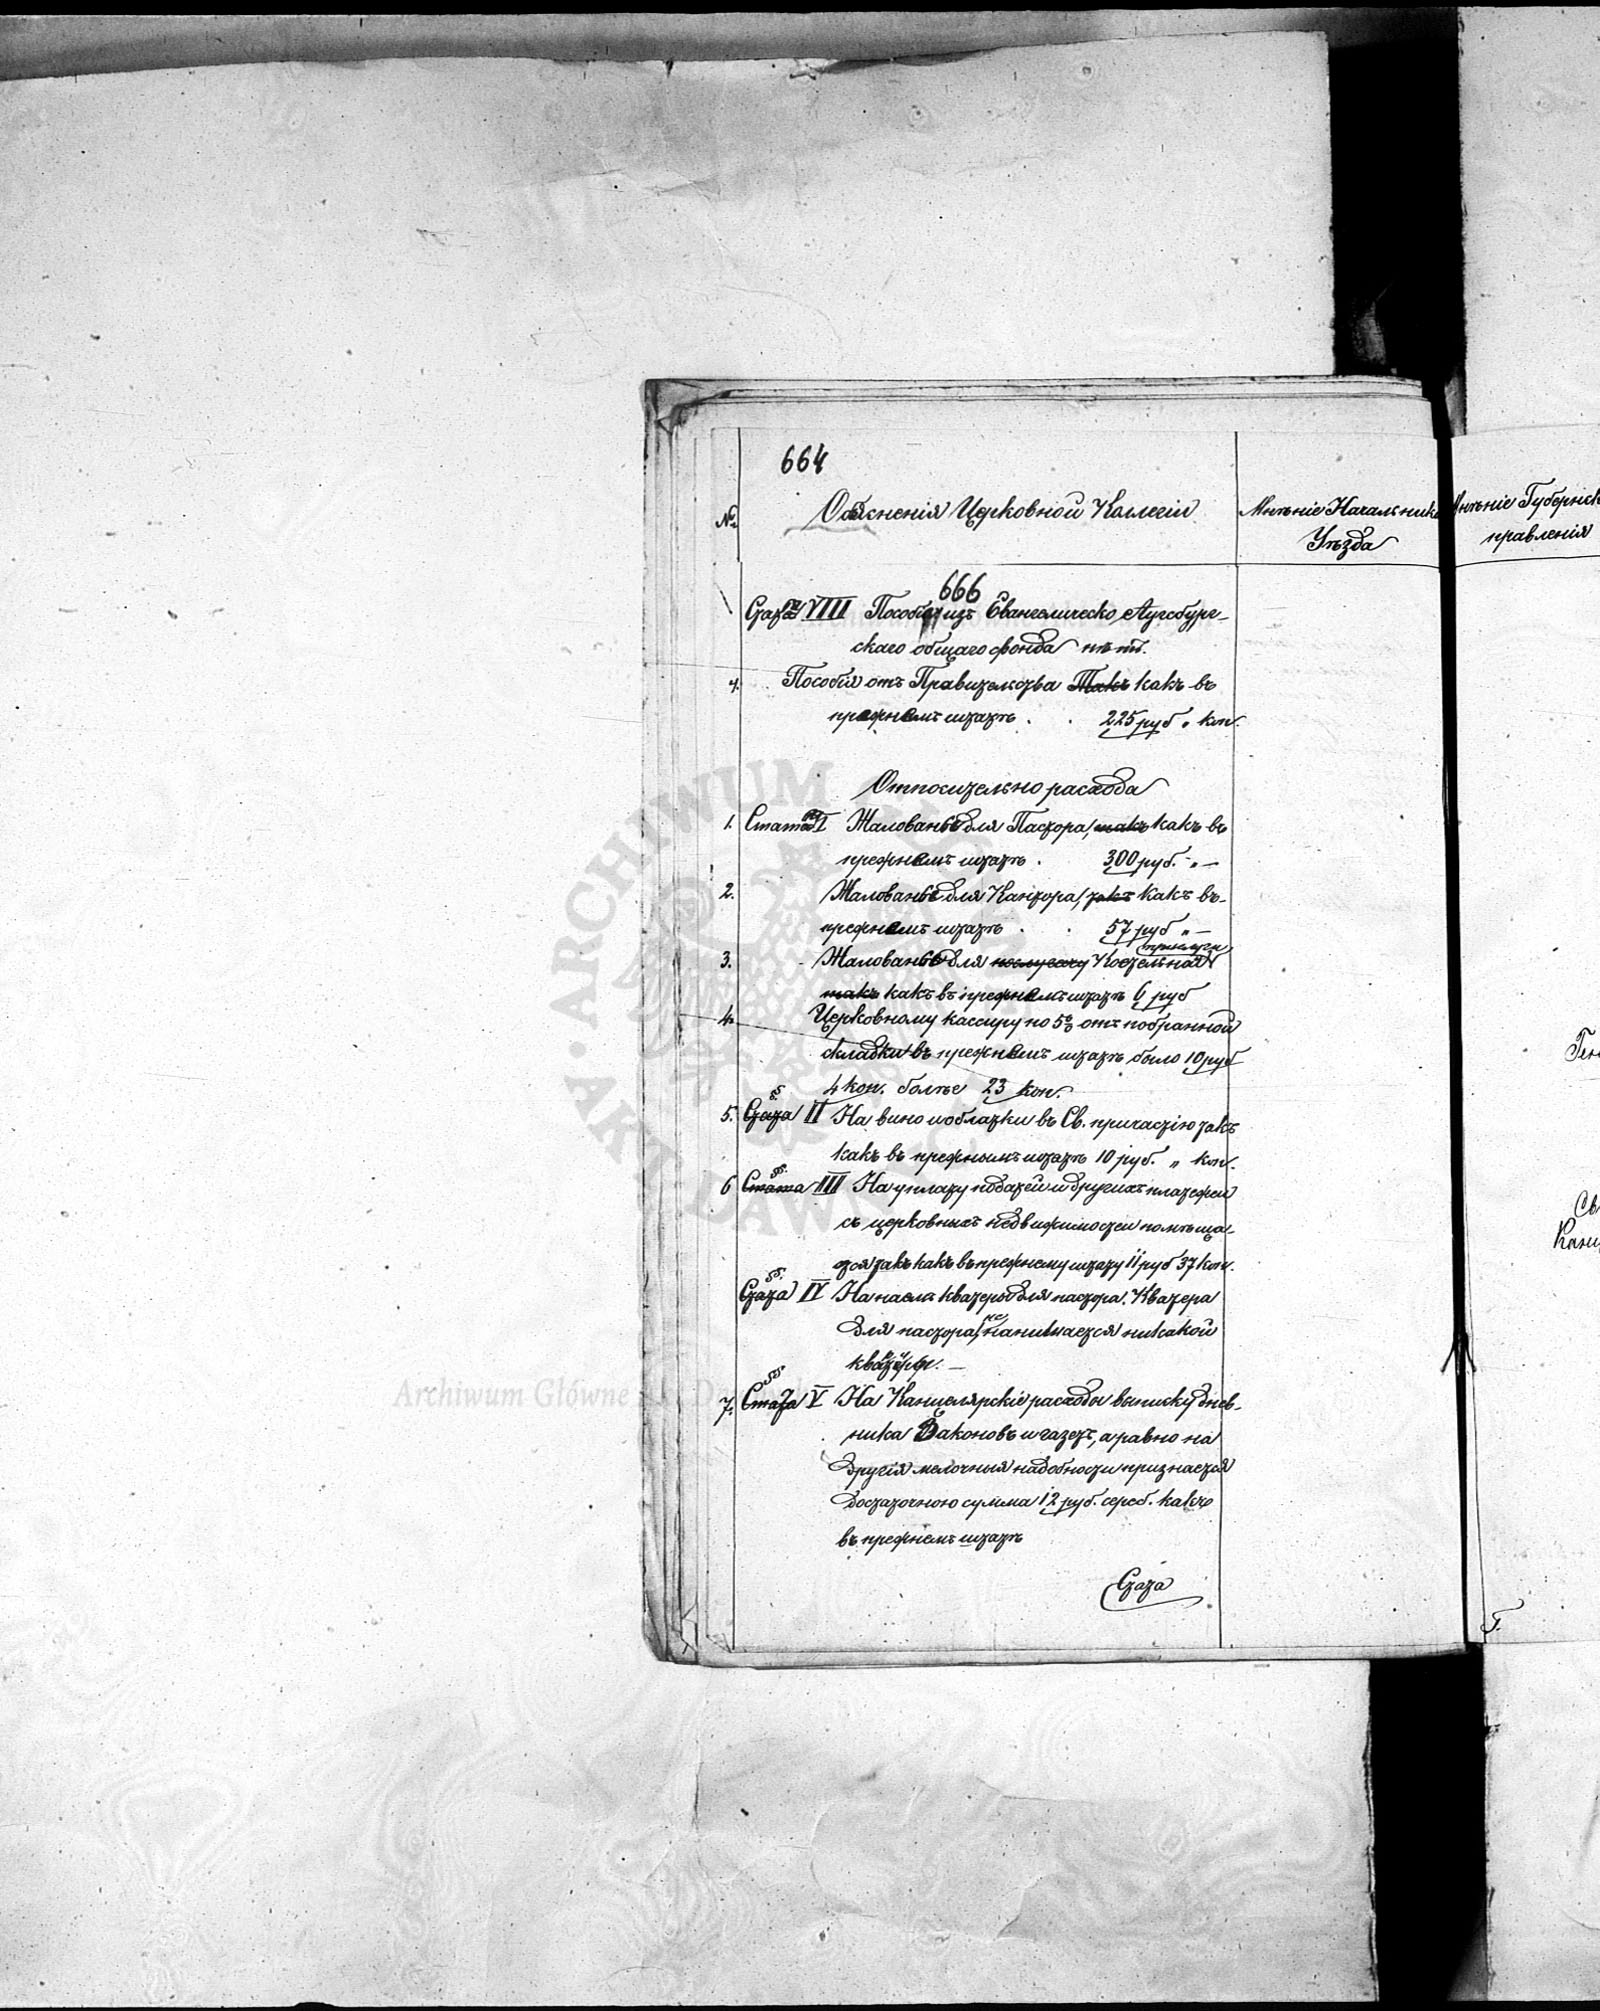 664
№
Объясненія Церковной Коллегіи
Мнѣніе Начальника
Уѣзда
Мнѣніе Губернск
правленія
666
VIII Пособія изъ Евангелическо Аугсбург-
скаго общаго фонда нѣтъ.
4. Пособія отъ Правительства Такъ какъ въ
прежнемъ штатѣ . . 225 руб „ коп.
Относительно расхода
1. Статья I Жалованье для Пастора, такъ какъ въ
прежнемъ штатѣ . 300 руб. „ —
2. Жалованье для Кантора, такъ какъ въ-
прежнемъ штатѣ . . 57 руб „ —
3. Жалованье для Костельной
прислуги
такъ какъ въ прежнемъ штатѣ 6 руб
4. Церковному кассиру по 5% отъ побранной
складки въ прежнемъ штатѣ было 10 руб
4 коп. болѣе 23 коп.
§
5. Стата II На вино и облатки въ Св. причастію такъ
какъ въ прежнымъ штатѣ 10 руб. „ коп.
§§.
6 Стата III На уплату податей и другихъ платежей
съ церковныхъ недвижимостей помѣща-
ются такъ какъ въ прежнему штату 11 руб 37 коп.
§§.
Стата IV На наемъ квартеры для пастора. Квартера
для пастора, не нанимается никакой
§§
7. Стата V На Канцелярскіе расходы выписку днев-
ника Законовъ и газетъ, а равно на
другія мелочныя надобности признается
достаточною сумма 12 руб. сереб. какъ
въ прежнемъ штатѣ
Стата
Ген
Св
Канц
Г.
ARCHIWUM
AKT DAWNYCH
Archiwum Główne Akt Dawnych